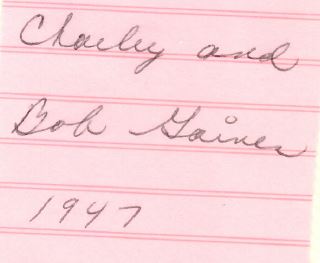 Charley and
Bob Gaines
1947